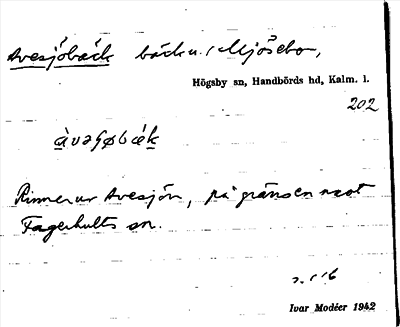 Avesjöbäck bäck u. Mjösebo,
Högsby sn, Handbörds hd, Kalm. l.
202
àvəʃøbǽk
Rinner ur Avesjön, på gränsen mot
Fagerhults sn.
Ivar Modéer 1942